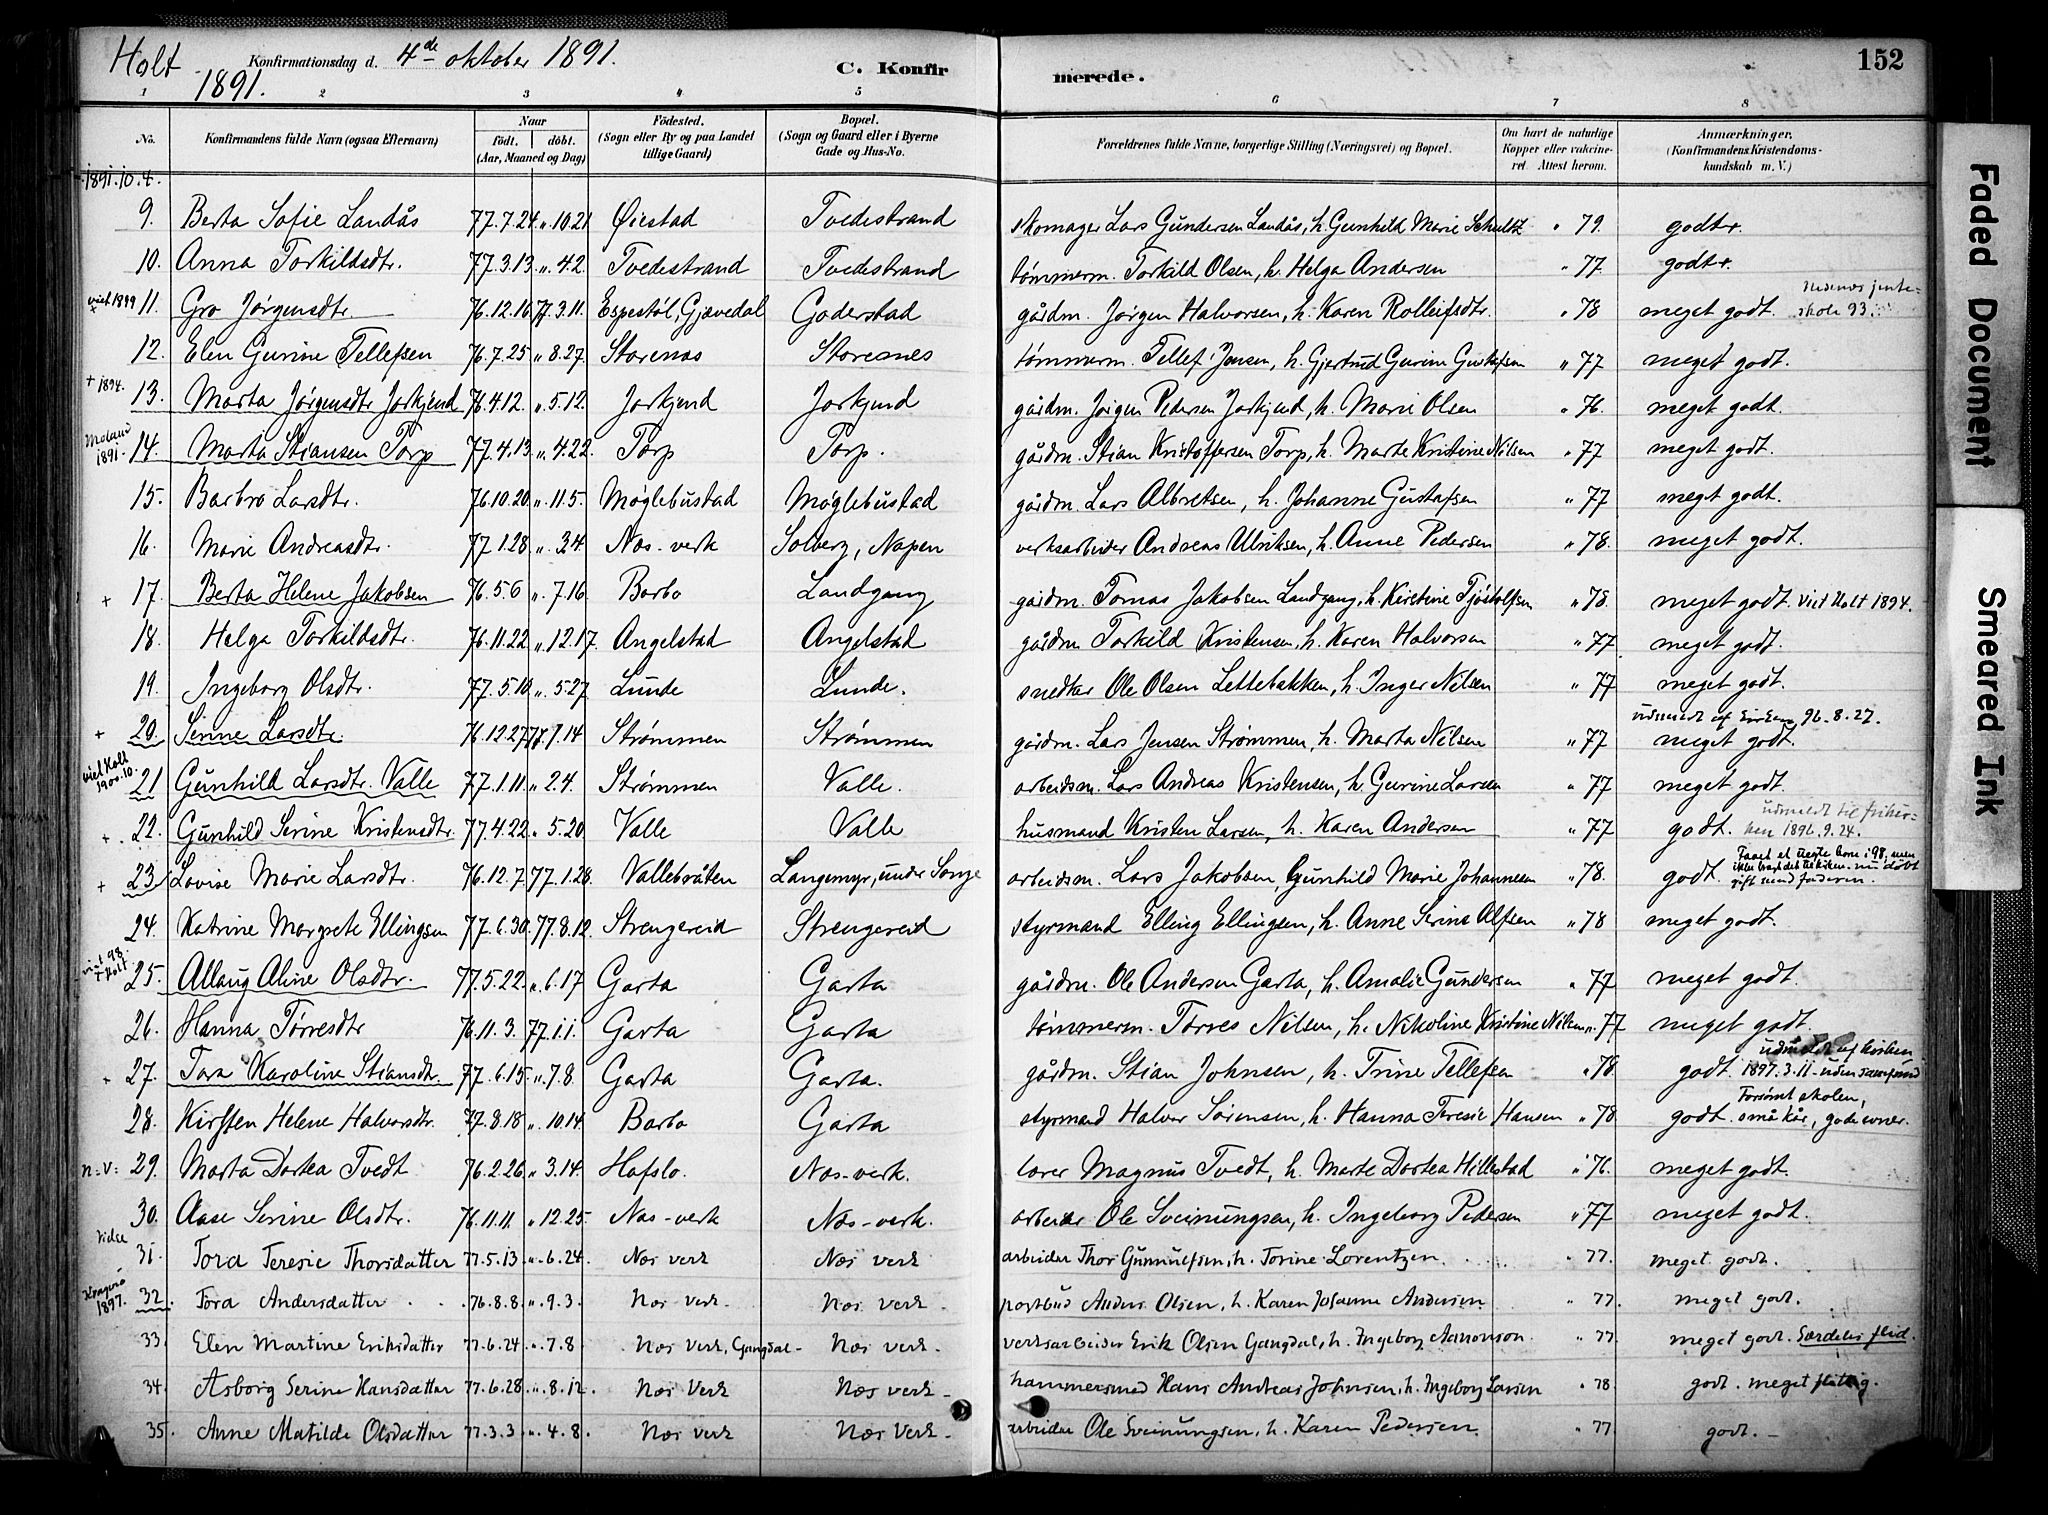 Holt Konfirmationsdag d. 4de oktober 1891. C. Konfir merede. 152
1891.
1 2 3 4 5 6 7 8
No. Konfirmandens fulde Navn (ogsaa Efternavn) Naar født. døbt. (Aar, Maaned og Dag) Fødested. (Sogn eller By og paa Landet tillige Gaard) Bopæl. (Sogn og Gaard eller i Byerne Gade og Hus-No. Forældrenes fulde Navne, borgerlige Stilling (Næringsvei) og Bopæl. Om havt de naturlige Kopper eller vakcineret. Attest herom. Anmærkninger. (Konfirmandens Kristendomskundskab m. V.)
1891.10.4.
9. Berta Sofie Landås 77.7.24 „.10.21 Øiestad Tvedestrand skomager Lars Gundersen Landås, h. Gunhild Marie Schultz „ 79. godt+.
10. Anna Torkildsdtr. 77.3.13 „.4.2. Tvedestrand Tvedestrand tømmerm. Torkild Olsen, h. Helga Andersen „ 77 godt+.
viet 1899 + 11. Gro Jørgensdtr. 76.12.16 77.3.11. Espestøl, Gjævedal Goderstad gårdm. Jørgen Halvorsen, h. Karen Rolleifsdtr. „ 78 meget godt. Nedenæs jenteskole 93.
12. Elen Gurine Tellefsen 76.7.25 „.8.27. Storenæs Storenæs tømmerm. Tellef Jensen, h. Gjertrud Gurine Gustafsen „ 77 meget godt.
+ 1894. 13. Marta Jørgensdtr Jorkjend 76.4.12. „.5.12. Jorkjend Jorkjend gårdm. Jørgen Pedersen Jorkjend, h. Marie Olsen „ 76. meget godt.
Moland 1891. 14. Marta Stiansen Torp 77.4.13 „.4.22. Torp Torp. gårdm. Stian Kristoffersen Torp, h. Marte Kristine Nilsen „ 77 meget godt.
15. Barbro Larsdtr. 76.10.20 „.11.5. Møglebustad Møglebustad gårdm. Lars Albretsen, h. Johanne Gustafsen „ 77 meget godt.
16. Marie Andreasdtr. 77.1.28 „.3.4. Næs-verk Solberg, Napen verksarbeider Andreas Ulriksen, h. Anne Pedersen „ 78. meget godt.
+ 17. Berta Helene Jakobsen 76.5.6 „.7.16. Barbo Landgang gårdm. Tomas Jakobsen Landgang, h. Kirstine Tjøstolfsen „ 78. meget godt. viet Holt 1894.
18. Helga Torkildsdtr. 76.11.22 „.12.17. Angelstad Angelstad gårdm. Torkild Kristensen, h. Karen Halvorsen „ 77. meget godt.
19. Ingeborg Olsdtr. 77.5.10 „.5.27 Lunde Lunde. snedker Ole Olsen Lettebakken, h. Inger Nilsen „ 77 meget godt.
udmeldt af kirken 96.8.27.
+ 20. Serine Larsdtr. 76.12.27 77.1.14 Strømmen Strømmen gårdm. Lars Jensen Strømmen, h. Marta Nilsen „ 77 meget godt.
viet Holt 1900.10. 21 Gunhild Larsdtr. Valle 77.1.11. „ 2.4. Strømmen Valle. arbeidsm. Lars Andreas Kristensen, h. Gurine Larsen „ 77 meget godt.
+ 22. Gunhild Serine Kristensdtr. 77.4.22 „ 5.20. Valle Valle husmand Kristen Larsen, h. Karen Andersen „ 77 godt. udmeldt til frikirken 1896.9.24.
+ 23 Lovise Marie Larsdtr. 76.12.7 77.1.28. Vallebråten Langemyr, under Songe arbeidsm. Lars Jakobsen, Gunhild Marie Johannesen „ 78. godt. Faaet et uegte barn i 98, men ikke bragt det til kirken. nu døbt gift med faderen.
24. Katrine Margrete Ellingsen 77.6.30. 77.8.12. Strengereid Strengereid styrmand Elling Ellingsen, h. Anne Serine Alfsen „ 78 meget godt.
viet 98. + Holt. 25. Allaug Aline Olsdtr. 77.5.22. „.6.17 Garta Garta gårdm. Ole Andersen Garta, h. Amalie Gundersen „ 77 meget godt.
26. Hanna Tørresdtr 76.11.3. 77.1.1. Garta Garta tømmerm. Tørres Nilsen, h. Nikoline Kristine Nilsen „ 77 meget godt.
27. Tora Karoline Stiansdtr. 77.6.15. „.7.8. Garta Garta. gårdm. Stian Johnsen, h. Trine Tellefsen „ 78 godt. udmeldt af kirken 1897.3.11. uden samfund
28. Kirsten Helene Halvorsdtr. 77.8.18 „.10.14 Barbo Garta styrmand Halvor Sørensen, h. Hanna Teresie Hansen „ 78 godt. Forsømt skolen, små kår, gode evner.
n.v: 29. Marta Dortea Tvedt 76.2.26. „ 3.14. Hafslo. Næs-verk. lærer Magnus Tvedt, h. Marte Dortea Hillestad „ 76. meget godt.
30. Aase Serine Olsdtr. 76.11.11. „ 12.25. Næs-verk Næs-verk. arbeider Ole Sveinungsen, h. Ingeborg Pedersen „ 77 meget godt.
31. Tora Teresie Thorsdatter 77.5.13 „.6.24. Næs verk Næs verk arbeider Thor Gunnulfsen, h. Torine Lorentzen. „ 77. meget godt.
Kragerø 1897. 32. Tora Andersdatter 76.8.8. „.9.3. Næs verk. Næs verk. postbud Anders Olsen, h. Karen Johanne Andersen „ 77. meget godt.
33. Elen Martine Eriksdatter 77.6.24 „.7.8 Næs verk, Gangdal Næs verk. verksarbeider Erik Olsen Gangdal, h. Ingeborg Aanonson. „ 77. meget godt. Særdeles flid.
34. Asborg Serine Hansdatter 77.6.28. „.8.12. Næs verk Næs verk hammersmed Hans Andreas Johnsen, h. Ingeborg Larsen „ 78. godt. meget flittig.
35. Anne Matilde Olsdatter 77.3.3 „.4.8. Næs verk Næs verk arbeider Ole Sveinungsen, h. Karen Pedersen. „ 77 godt.
Faded Document
Smeared Ink